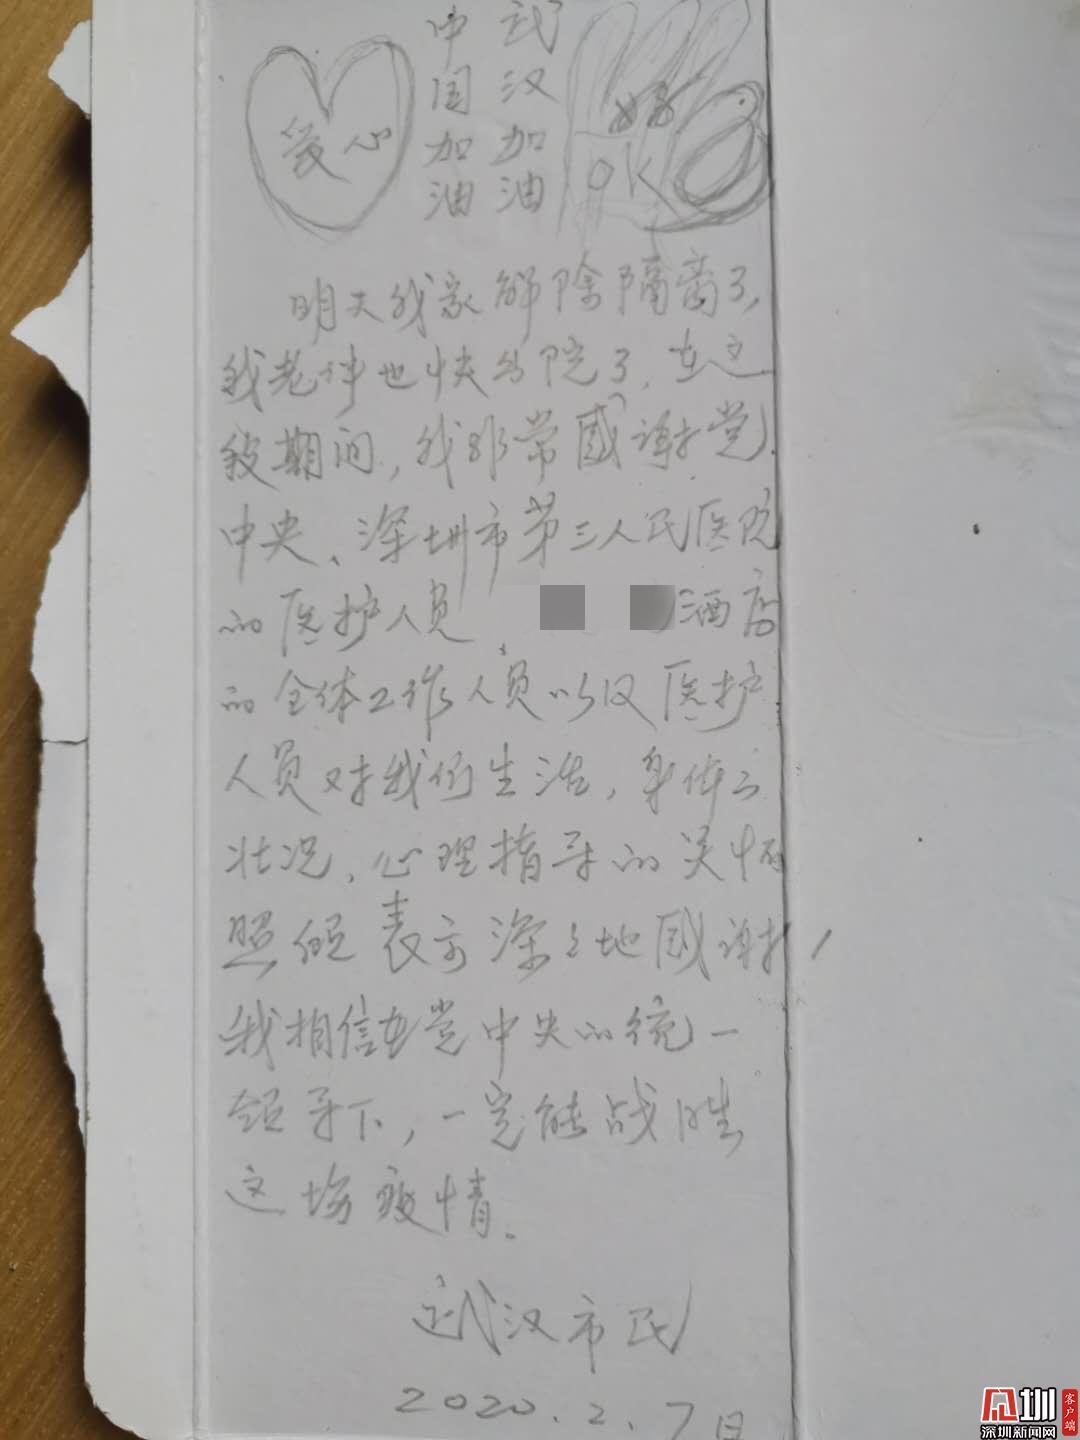 爱心
中国加油
武汉加油
好
OK
明天我家解除隔离了,
我老伴也快出院了,在这
段期间,我非常感谢党
中央、深圳市第三人民医院
的医护人员、
酒店
的全体工作人员以及医护
人员对我们生活,身体
状况、心理指导的关怀
照顾表示深深地感谢,
我相信在党中央的统一
领导下,一定能战胜
这场疫情。
武汉市民
2020.2.7日
圳
深圳新闻网
客户端